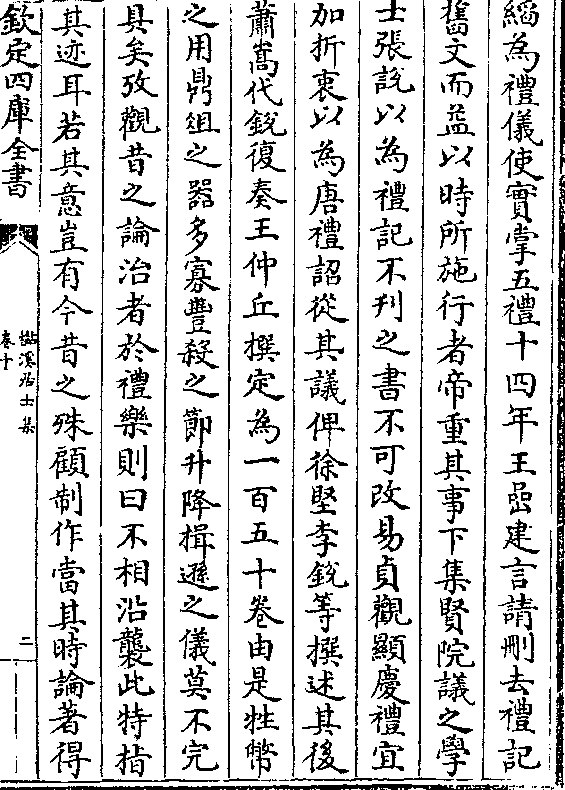 縚為禮儀使實掌五禮十四年王嵒建言請刪去禮記
舊文而益以時所施行者帝重其事下集賢院議之學
士張說以為禮記不刊之書不可改易貞觀顯慶禮宜
加折衷以為唐禮詔從其議俾徐堅李銳等撰述其後
蕭嵩代銳復奏王仲丘撰定為一百五十卷由是牲幣
之用鼎俎之器多寡豐殺之節升降揖遜之儀莫不完
具矣攷觀昔之論治者於禮樂則曰不相沿襲此特指
其迹耳若其意豈有今昔之殊顧制作當其時論著得
欽定四庫全書
檆溪居士集
卷十
二